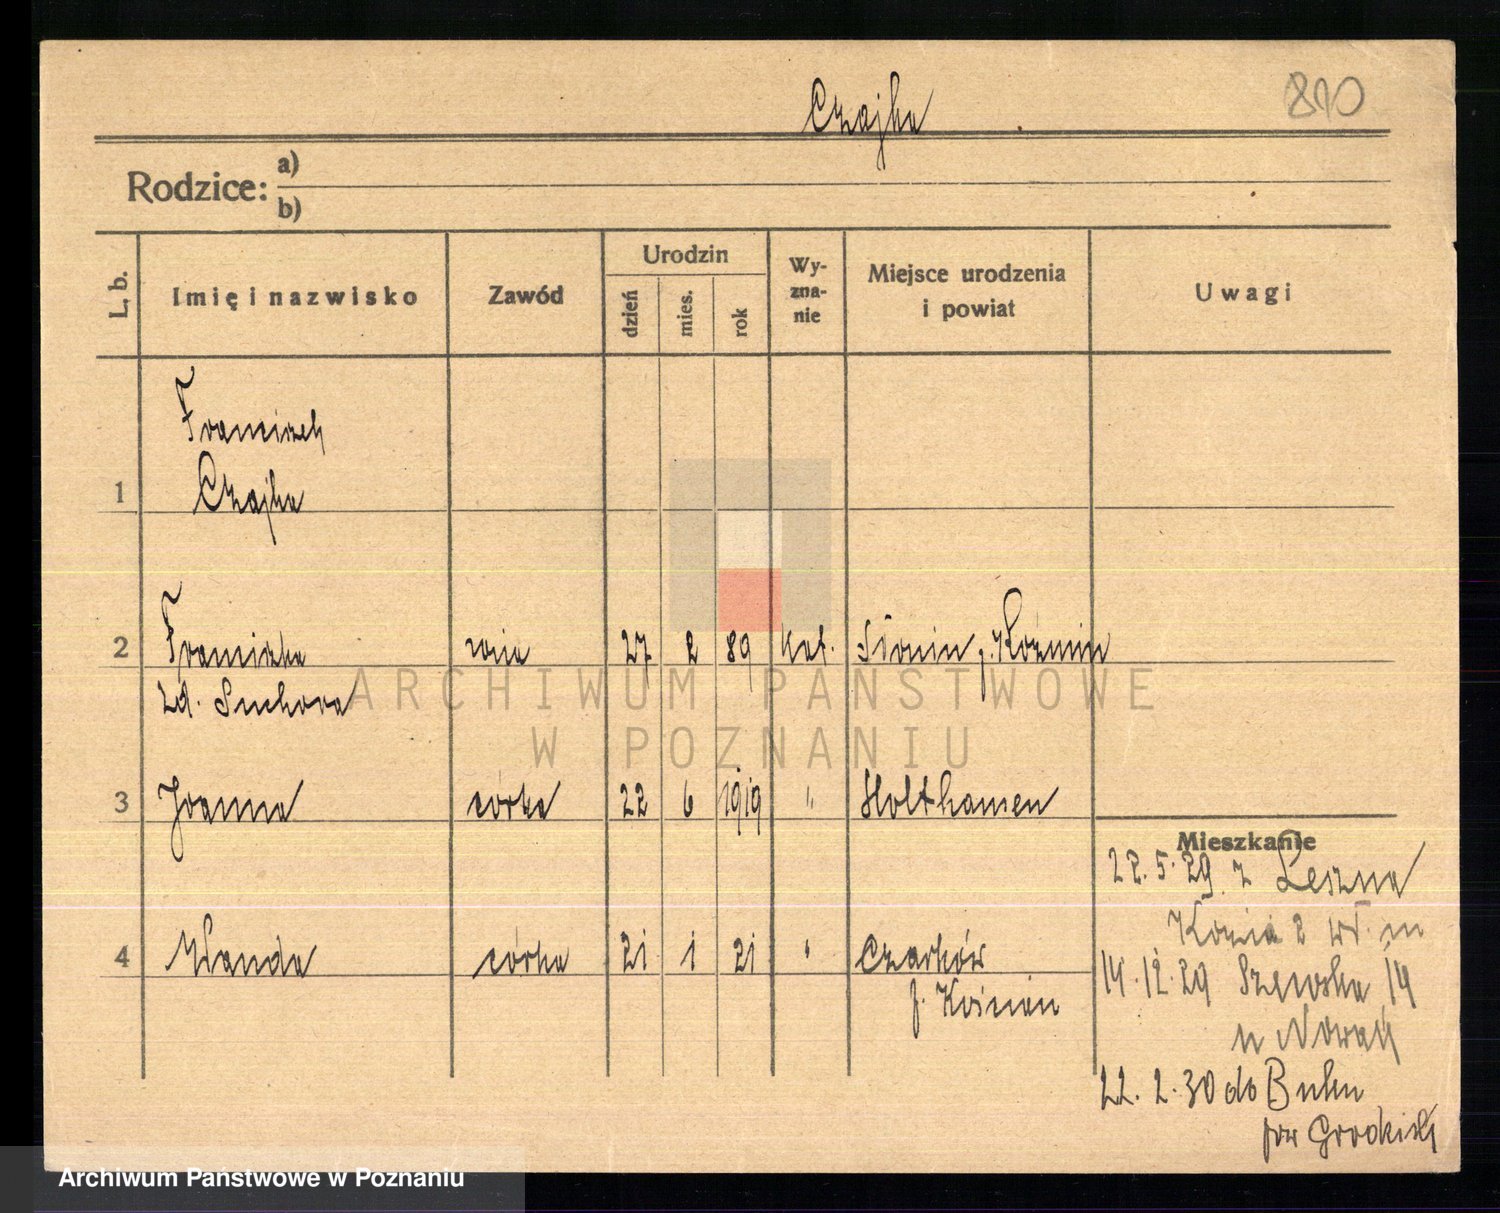 810
Czajka
Rodzice: a)
b)
L. b. Imię i nazwisko Zawód Urodzin dzień mies. rok Wy-zna-nie Miejsce urodzenia i powiat Uwagi
Franciszek
1 Czajka
2 Franciszka żona 27 2 89 kat. p. Koźmin
zd. Suchora
3 Joanna córka 22 6 1919 " Holthausen
Mieszkanie
22.5.29 z Leszna
Kozia 2
4 Wanda córka 21 1 21 " Czarków
p. Kościan
14.12.29 Szewska 14
u Nowak
22.2.30 do Buku
pow Grodzisk
ARCHIWUM PAŃSTWOWE
W POZNANIU
Archiwum Państwowe w Poznaniu